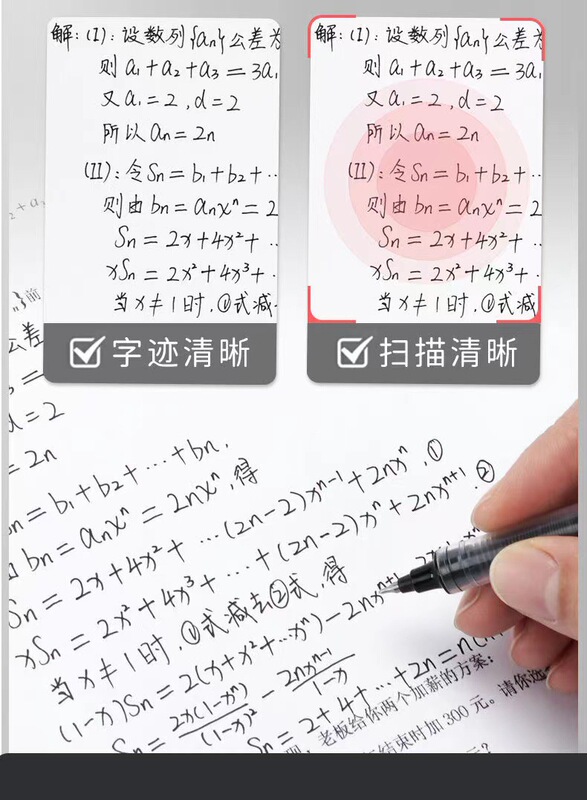 解：(I)：设数列{an}公差为
则 a₁+a₂+a₃=3a₁
又 a₁=2，d=2
所以 an=2n
(II)：令Sn=b₁+b₂+⋯
则由 bn=anxⁿ=2
Sn=2x+4x²+⋯
xSn=2x²+4x³+⋯
当x≠1时，①式减
字迹清晰
解：(I)：设数列{an}公差为
则 a₁+a₂+a₃=3a₁
又 a₁=2，d=2
所以 an=2n
(II)：令Sn=b₁+b₂+⋯
则由 bn=anxⁿ=2
Sn=2x+4x²+⋯
xSn=2x²+4x³+⋯
当x≠1时，①式减
扫描清晰
2+a₃
}前
公差
=
d=2
=2n
Sn=b₁+b₂+⋯+bn，
由bn=anxⁿ=2nxⁿ，得
Sn=2x+4x²+⋯(2n-2)xⁿ⁻¹+2nxⁿ，①
xSn=2x²+4x³+⋯+(2n-2)xⁿ+2nxⁿ⁺¹，②
当x≠1时，①式减去②式，得
(1-x)Sn=2(x+x²+⋯xⁿ)-2nxⁿ⁺¹
Sn=2x(1-xⁿ)/(1-x)²-2nxⁿ⁻¹/1-x
Sn=2+4+⋯+2n=n(n
，老板给你两个加薪的方案：
结束时加300元。请你选
元？